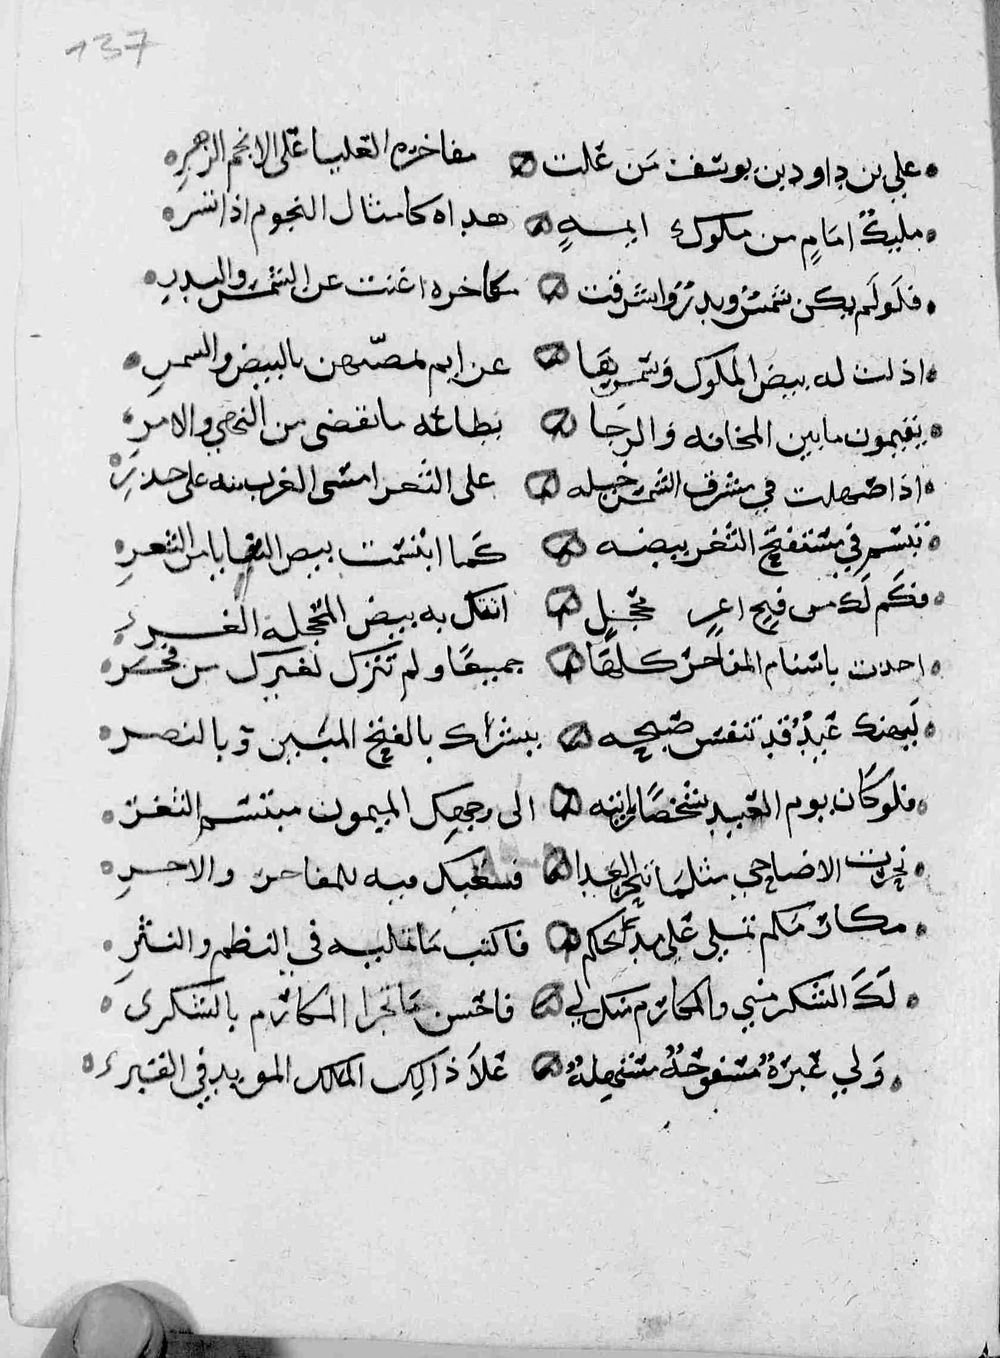 137
علي بن داود بن يوسف من علت مفاخره العليا على الانجم الزهر
مليك امام من ملوك ايمة هداه كامثال النجوم اذا تسر
فلو لم يكن شمس وبدر واشرقت مفاخره اغنت عن الشمس والبدر
اذلت له بيض الملوك وسمرها عن ايم بالبيض والسمر
يقيمون ما بين المخافه والرجا بطاعته ما تقضى من النهي والامر
اذا صهلت في مشرق الشمس خيله على الثغر امسى الغرب منه على حذر
تبتسم في مستفتح الثغر بيضه كما ابتسمت بيض الثنايا من الثغر
فكم لك من فتح اغر محجل اتتك به بيض المحجلة الغر
اخذت باسنام المفاخر كلها جميعا ولم تترك لغيرك من فخر
ليهنك عيد قد تنفس صبحه ببشراك بالفتح المبين وبالنصر
فلو كان يوم العيد شخصا رايته الى وجهك الميمون مبتسم الثغر
نحرت الاضاحي مثلما تنحر العدا فسعيك فيه للمفاخر والاجر
مكارمكم تملي على مدحكم فاكتب ما تمليه في النظم والنثر
لك الشكر مني والمكارم منك لي فاحسن ما تجزا المكارم بالشكرى
ولي عبرة مسفوحة مستهلة علا ذاك الملك المويد في القبر